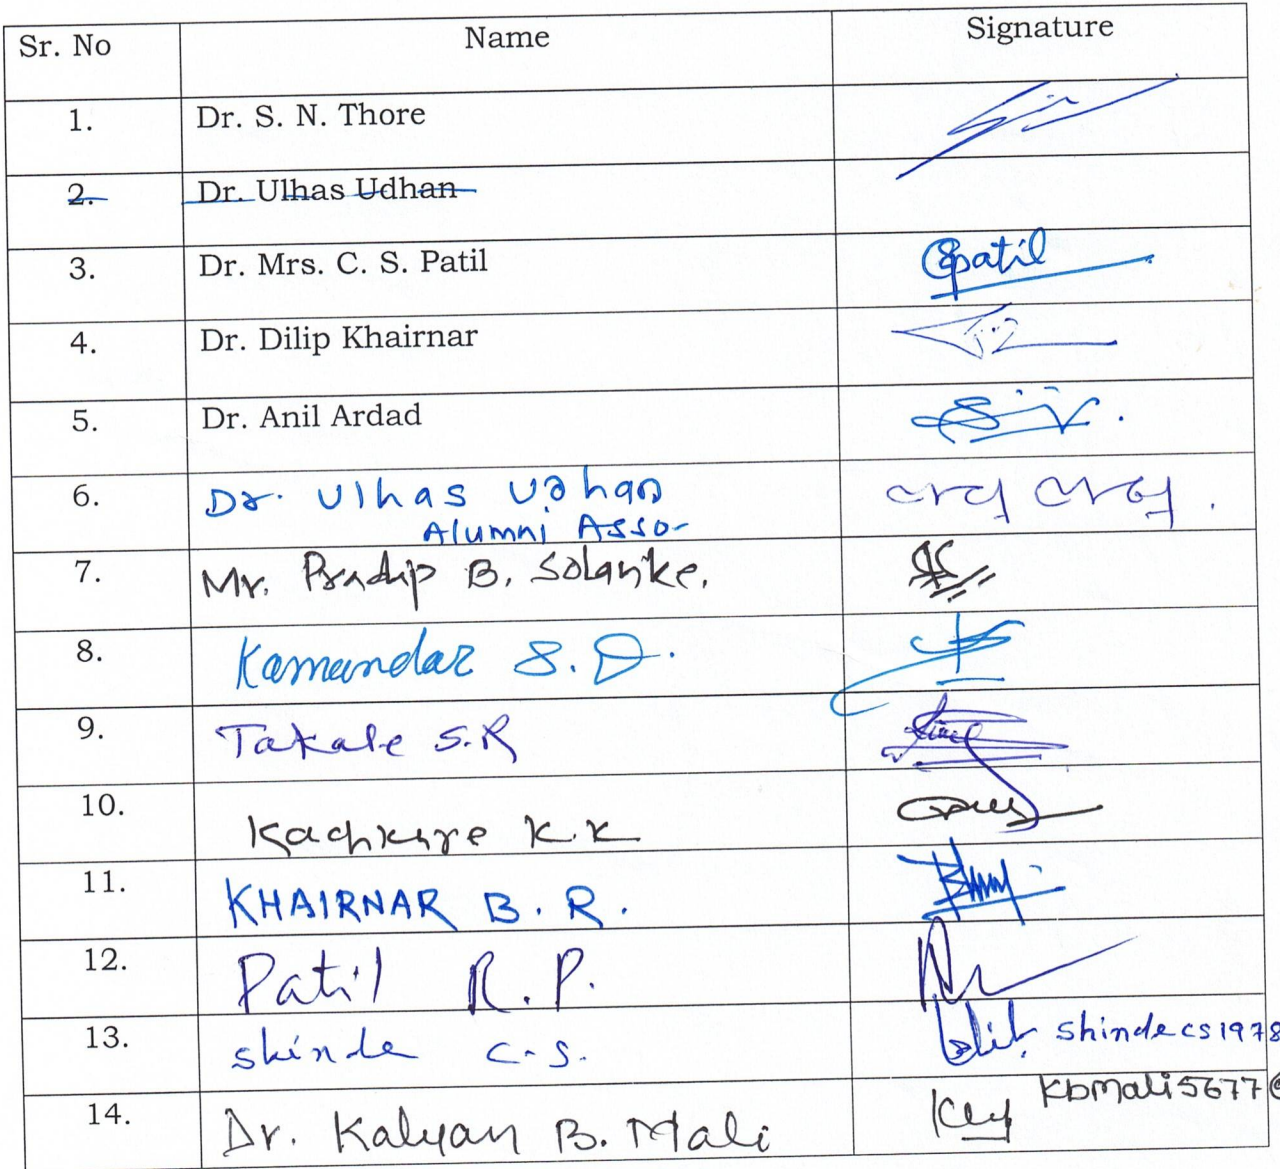 Sr. No Name Signature
1. Dr. S. N. Thore
2. Dr. Ulhas Udhan
3. Dr. Mrs. C. S. Patil Cspatil
4. Dr. Dilip Khairnar
5. Dr. Anil Ardad
6. Dr. Ulhas Udhan
Alumni Asso-
7. Mr. Pradip B. Solanke.
8. Kamandar S. D.
9. Takale S.R
10. Kachkure K.K
11. KHAIRNAR B. R.
12. Patil R. P.
13. shinde c-s. shindecs1978
14. Dr. Kalyan B. Mali kbmali5677@